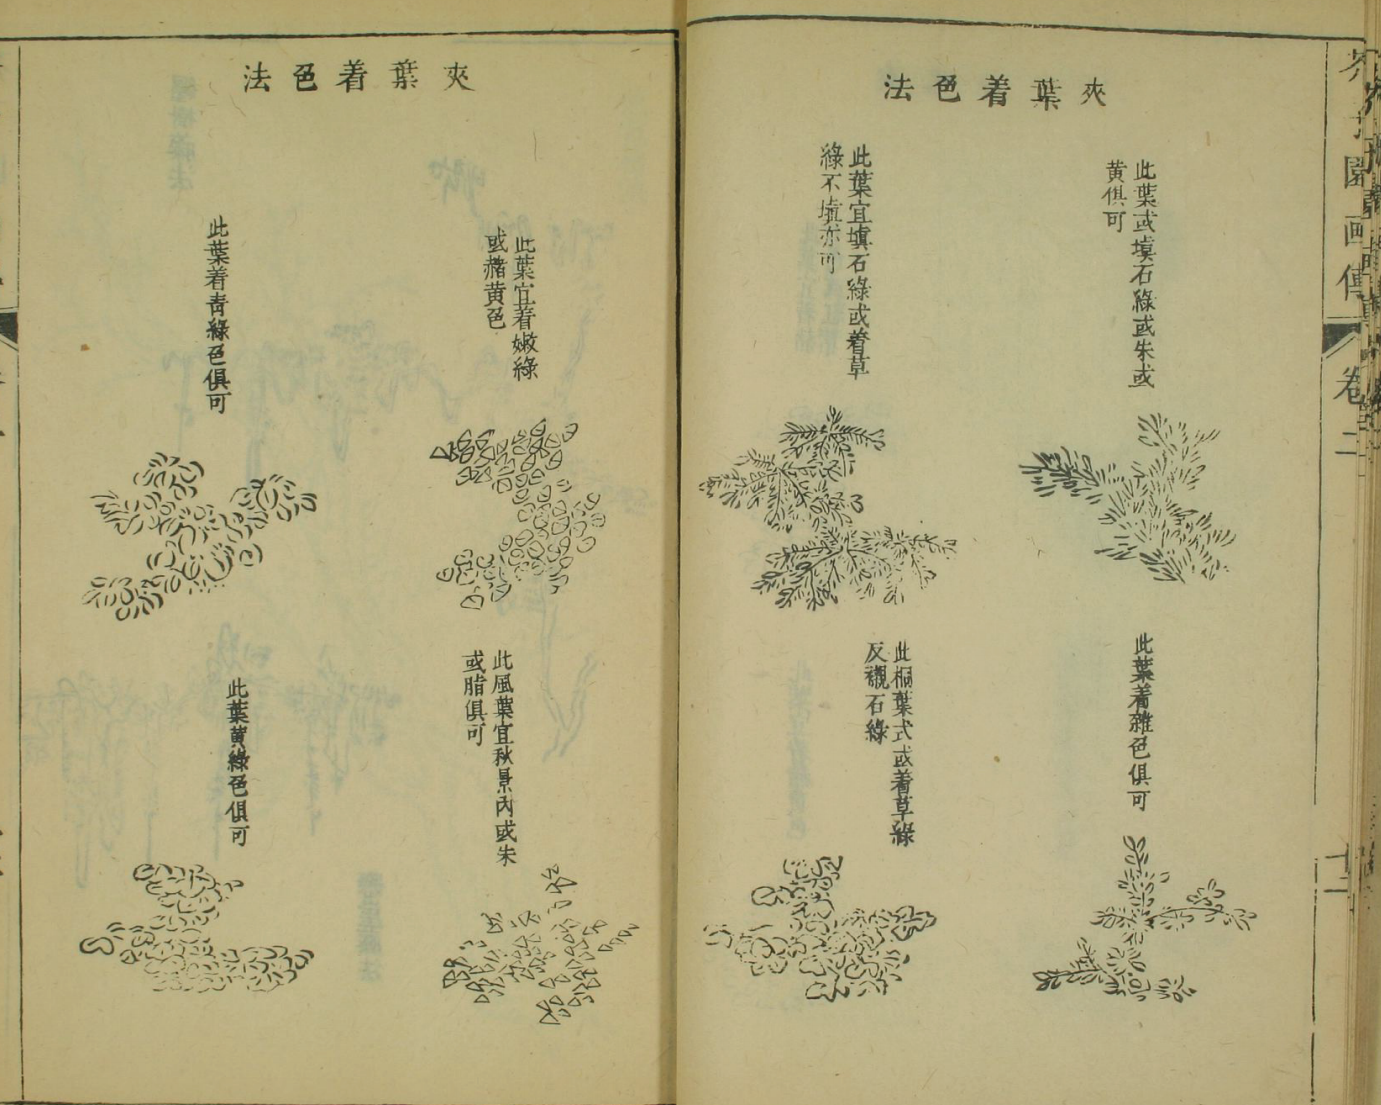 夾葉着色法
此葉或塡石綠或朱或
黄俱可
此葉宜塡石綠或着草
綠不塡亦可
此葉着雜色俱可
此桐葉式或着草綠
反襯石綠
夾葉着色法
此葉宜着嫩綠
或赭黄色
此葉着青綠色俱可
此風葉宜秋景內或朱
或脂俱可
此葉黄綠色俱可
園画傳
卷二
十二